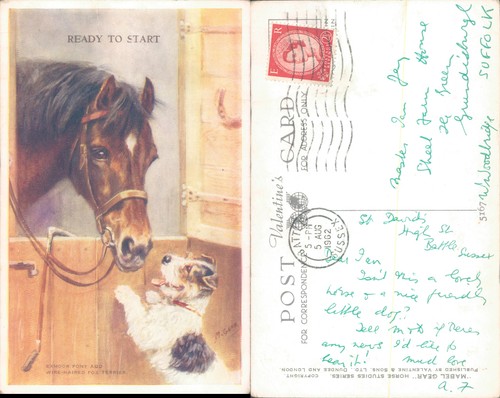 READY TO START
EXMOOR PONY AND
WIRE-HAIRED FOX TERRIER
E R
POST CARD
Valentine's
FOR CORRESPONDENCE
FOR ADDRESS ONLY
BATTLE
5-PM
5 AUG
1962
SUSSEX
Master Ian Jay
Street Farm House
The Green
Grundisburgh
SUFFOLK
Nr Woodbridge
St Davids
High St
Battle Sussex
Dear Ian
Isn't this a lovely
horse & a nice friendly
little dog?
Tell Mots if there's
any news I'd like to
hear it! much love
A. F
"MABEL GEAR" HORSE STUDIES SERIES. COPYRIGHT
PUBLISHED BY VALENTINE & SONS, LTD., DUNDEE AND LONDON